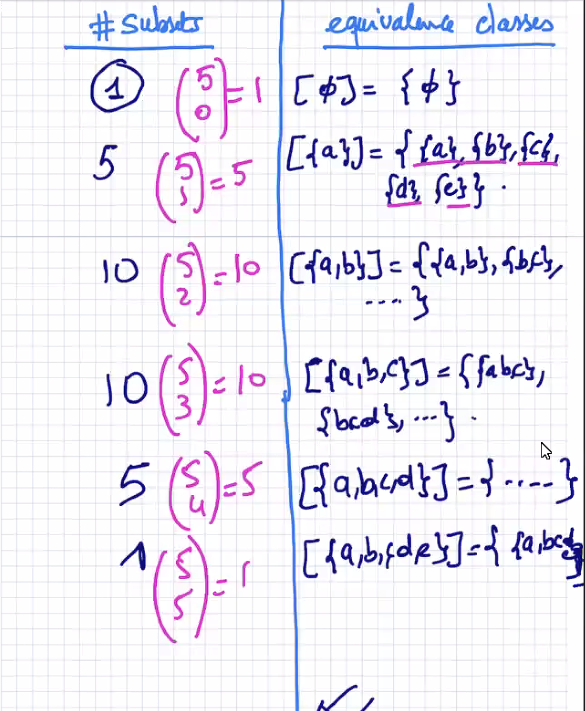 # Subsets equivalence classes
1 (5 0) = 1 [ϕ] = {ϕ}
5 (5 1) = 5 [{a}] = { {a}, {b}, {c},
{d}, {e} } .
10 (5 2) = 10 [{a,b}] = { {a,b}, {b,c},
.... }
10 (5 3) = 10 [{a,b,c}] = { {abc},
{bcd}, ... } .
5 (5 4) = 5 [{a,b,c,d}] = { ..... }
1 (5 5) = 1 [{a,b,c,d,e}] = { {a,bcd